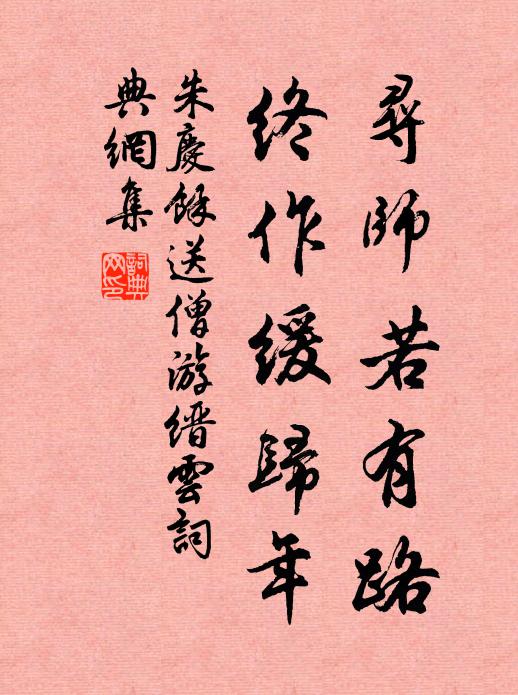 尋師若有路
終作緩歸年
朱慶餘送僧游縉雲詞
典網集
詞典網印